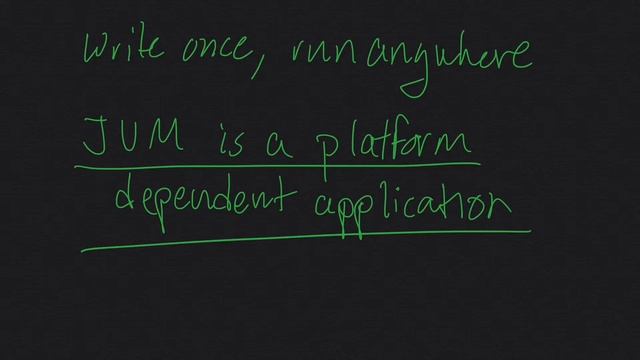 Write once, run anywhere
JVM is a platform
dependent application